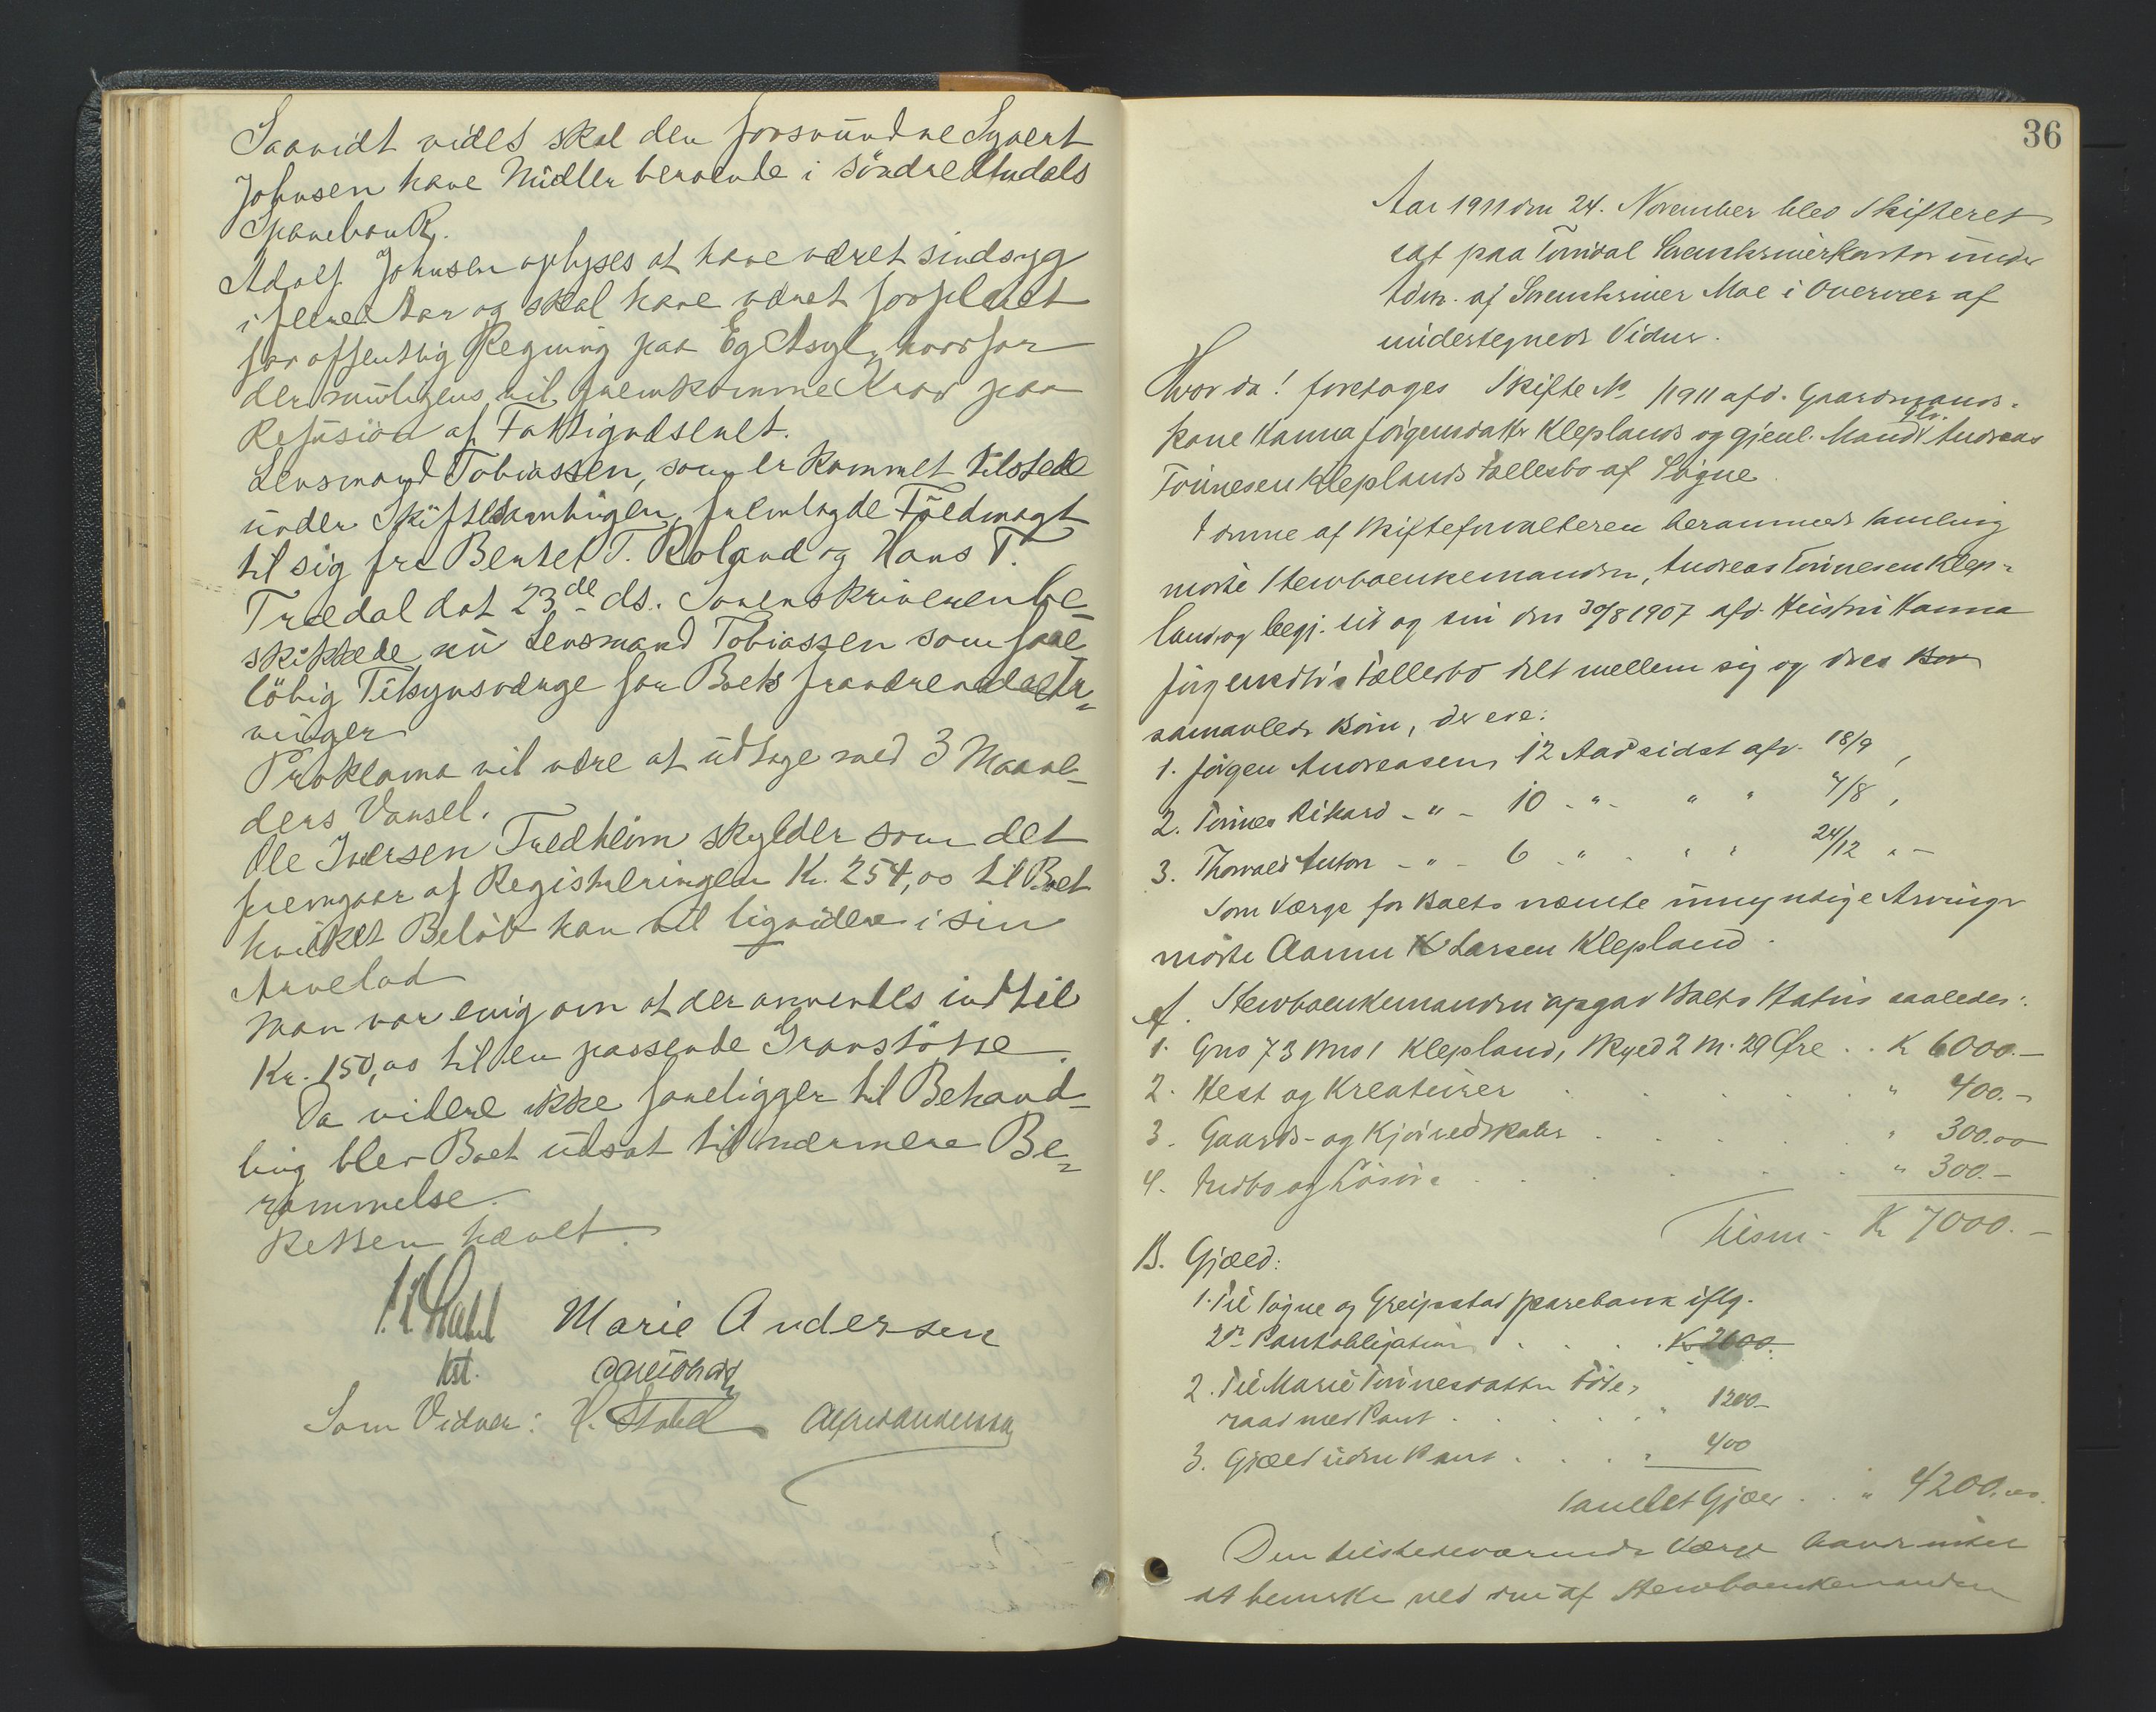 Saavidt vides skal den forsvundne Syvert
Johnsen have Midler beroende i Söndre Undals
Sparebank.
Adolf Johnsen oplyses at have været sindsyg
i flere Aar og skal have været forpleiet
for offentlig Regning paa Eg Asyl, hvorfor
der muligens vil fremkomme Krav paa
Refusion af Fattigvæsenet.
Lensmand Tobiassen, som er kommet tilstede
under Skiftesamlingen, fremlagde Fuldmagt
til sig fra Bentet T. Roland og Hans T.
Trædal dat 23de ds. Sorenskriveren be-
skikkede nu Lensmand Tobiassen som fore-
löbig Tilsynsværge for Boets fraværende Ar-
vinger
Proklama vil være at udtage med 3 Maane-
ders Varsel.
Ole Iversen Tredheim skylder som det
fremgaar af Registreringen Kr. 254,00 til Boet
hvilket Belöb han vil liqvidere i sin
Arvelod
Man var enig om at der anvendes indtil
Kr. 150,00 til en passende Gravstötte.
Da videre ikke foreligger til Behand-
ling blev Boet udsat til nærmere Be-
rammelse.
Retten hævet.
Marie Andersen
kst.
Som Vidner: H. Stabel Alfred Andersen
36
Aar 1911 den 24. November blev Skifteret
sat paa Sorenskriverkontor under
Adm. af Sorenskriver Moe i Overvær af
undertegnede Vidner.
Hvor da! foretages Skifte No /1911 afd. Gaardmands-
kone Hanna Jörgensdatter Kleplands og gjenl. Mand Andreas
Tönnesen Kleplands Fællesbo af Sögne.
I denne af Skifteforvalteren berammede Samling
mödte Stervboenkemanden, Andreas Tönnesen Klep-
land og begj. sit og sin den 30/8 1907 afd. Hustru Hanna
Jörgensdtr's Fællesbo delt mellem sig og deres
samavlede Börn, der ere:
1. Jörgen Andreasen, 12 Aar sidst afv. 18/9,
2. Tönnes Rikard - " - 10 - " - " " 4/8,
3. Thorvald Anton - " - 6 - " - " " 24/12 " -
Som Værge for Boets nævnte umyndige Arvinger
mödte Aanen K Larsen Klepland.
A. Stervboenkemanden opgav Boets Status saaledes:
1. Gno 73 Bno 1 Klepland, Skyld 2 M. 29 Öre . . K 6000.-
2. Hest og Kreaturer . . . . . " 400.-
3. Gaards- og Kjöredskaber . . . . " 300.00
4. Indbo og Lösöre . . . . . " 300.-
Tilsm. K 7000.-
B. Gjæld:
1. Til Sögne og Greipstad Sparebank iflg.
2de Pantobligationer . . . . K 2600.
2. Til Marie Tönnesdatter Föde-
raad med Pant . . . . . " 1200-
3. Gjæld uden Pant . . . " 400
Samlet Gjæld . . " 4200.00.
Den tilstedeværende Værge havde intet
at bemerke ved den af Stervboenkemanden